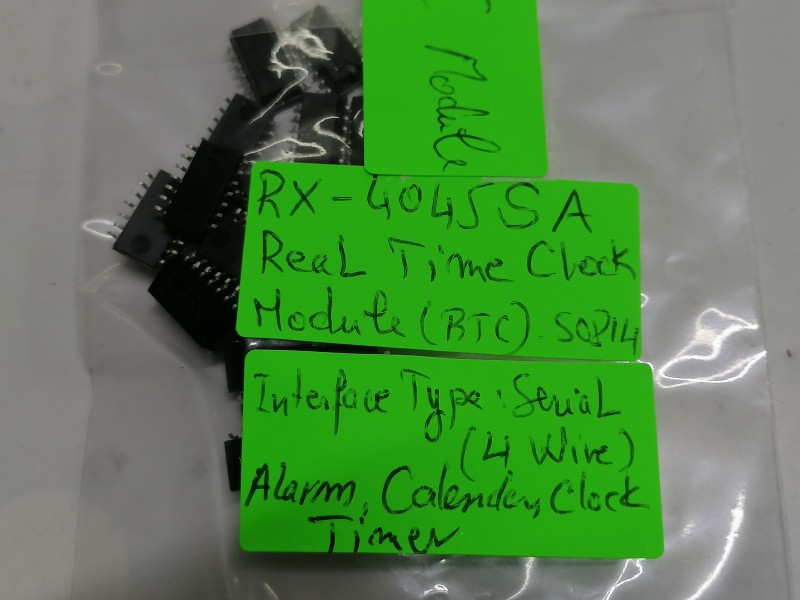 Module
RX-4045SA
Real Time Clock
Module (RTC) - SOP14
Interface Type: Serial
(4 Wire)
Alarm, Calender, Clock
Timer